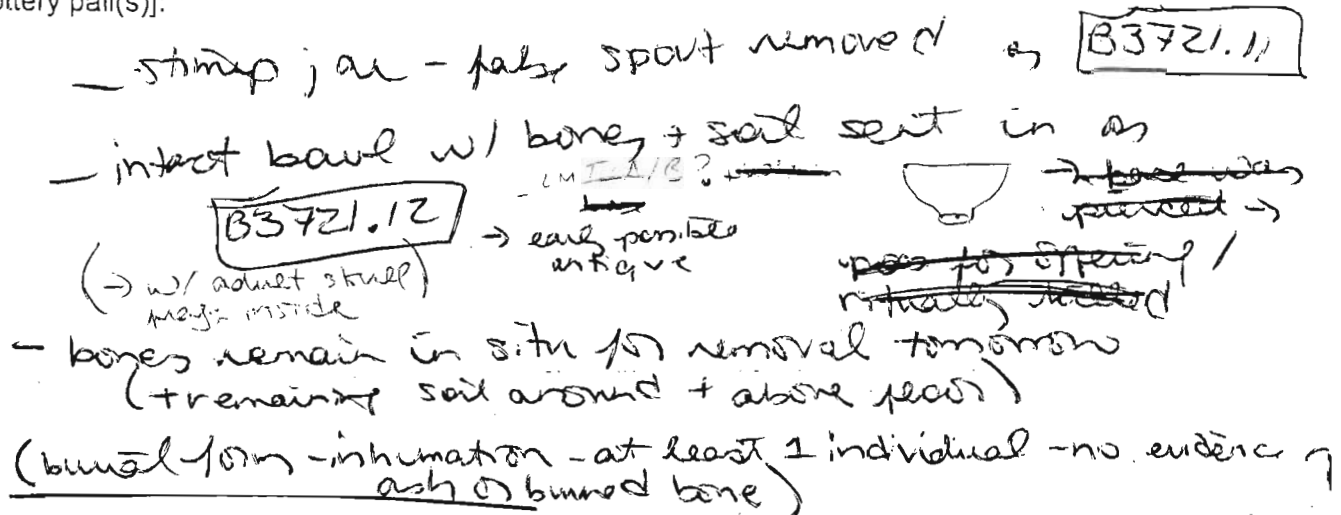 ottery pail(s)].
– stirrup jar – false spout removed as B3721.11
– intact bowl w/ bones + soil sent in as
B3721.12 – LM I A/B?
→ base was pierced →
→ early possible antique
poss for offering /
ritually killed
(→ w/ adult skull frags inside)
– bones remain in situ for removal tomorrow
(+ remaining soil around + above)
(burial form – inhumation – at least 1 individual – no evidence of
ash or burned bone)